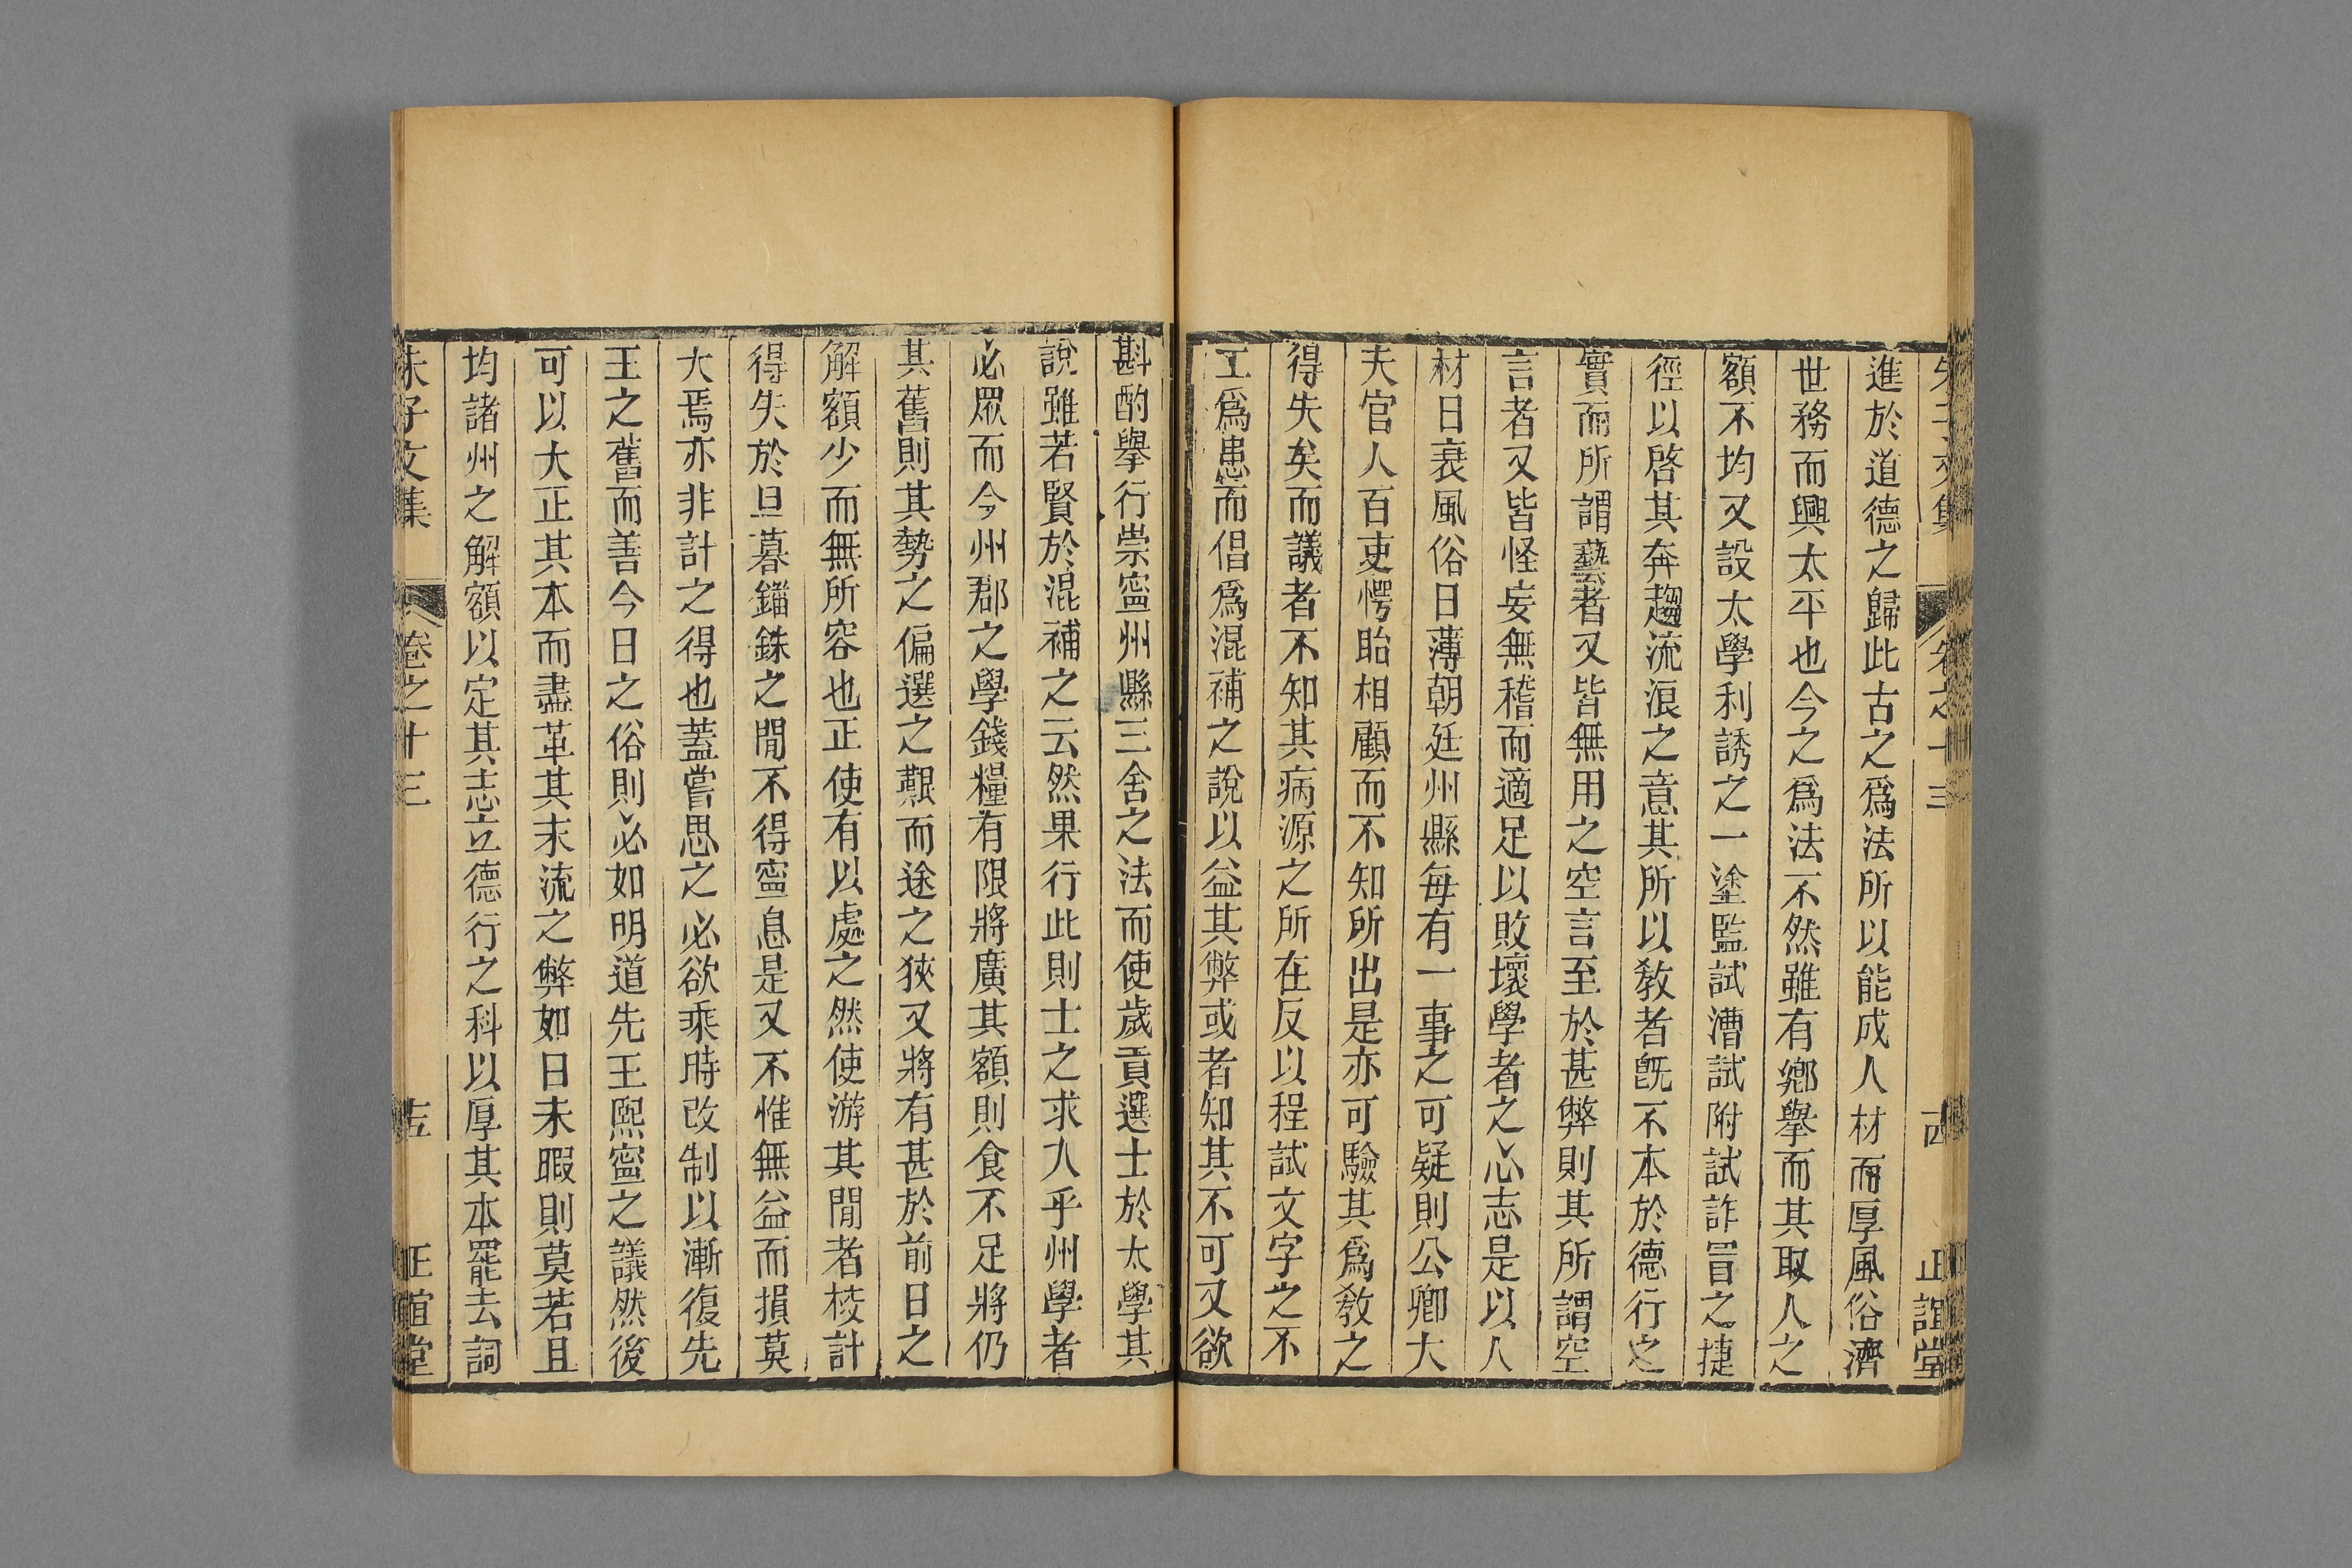 朱子文集 卷之十三 十四 正誼堂
進於道德之歸此古之爲法所以能成人材而厚風俗濟
世務而興太平也今之爲法不然雖有鄉舉而其取人之
額不均又設太學利誘之一塗監試漕試附試詐冒之捷
徑以啓其奔趨流浪之意其所以敎者旣不本於德行之
實而所謂藝者又皆無用之空言至於甚弊則其所謂空
言者又皆怪妄無稽而適足以敗壞學者之心志是以人
材日衰風俗日薄朝廷州縣每有一事之可疑則公卿大
夫官人百吏愕眙相顧而不知所出是亦可驗其爲敎之
得失矣而議者不知其病源之所在反以程試文字之不
工爲患而倡爲混補之說以益其弊或者知其不可又欲
斟酌舉行崇寧州縣三舍之法而使歲貢選士於太學其
說雖若賢於混補之云然果行此則士之求入乎州學者
必眾而今州郡之學錢糧有限將廣其額則食不足將仍
其舊則其勢之偏選之艱而途之狹又將有甚於前日之
解額少而無所容也正使有以處之然使游其閒者校計
得失於旦暮錙銖之閒不得寧息是又不惟無益而損莫
大焉亦非計之得也蓋嘗思之必欲乘時改制以漸復先
王之舊而善今日之俗則必如明道先王熙寧之議然後
可以大正其本而盡革其末流之弊如日未暇則莫若且
均諸州之解額以定其志立德行之科以厚其本罷去詞
朱子文集 卷之十三 十五 正誼堂